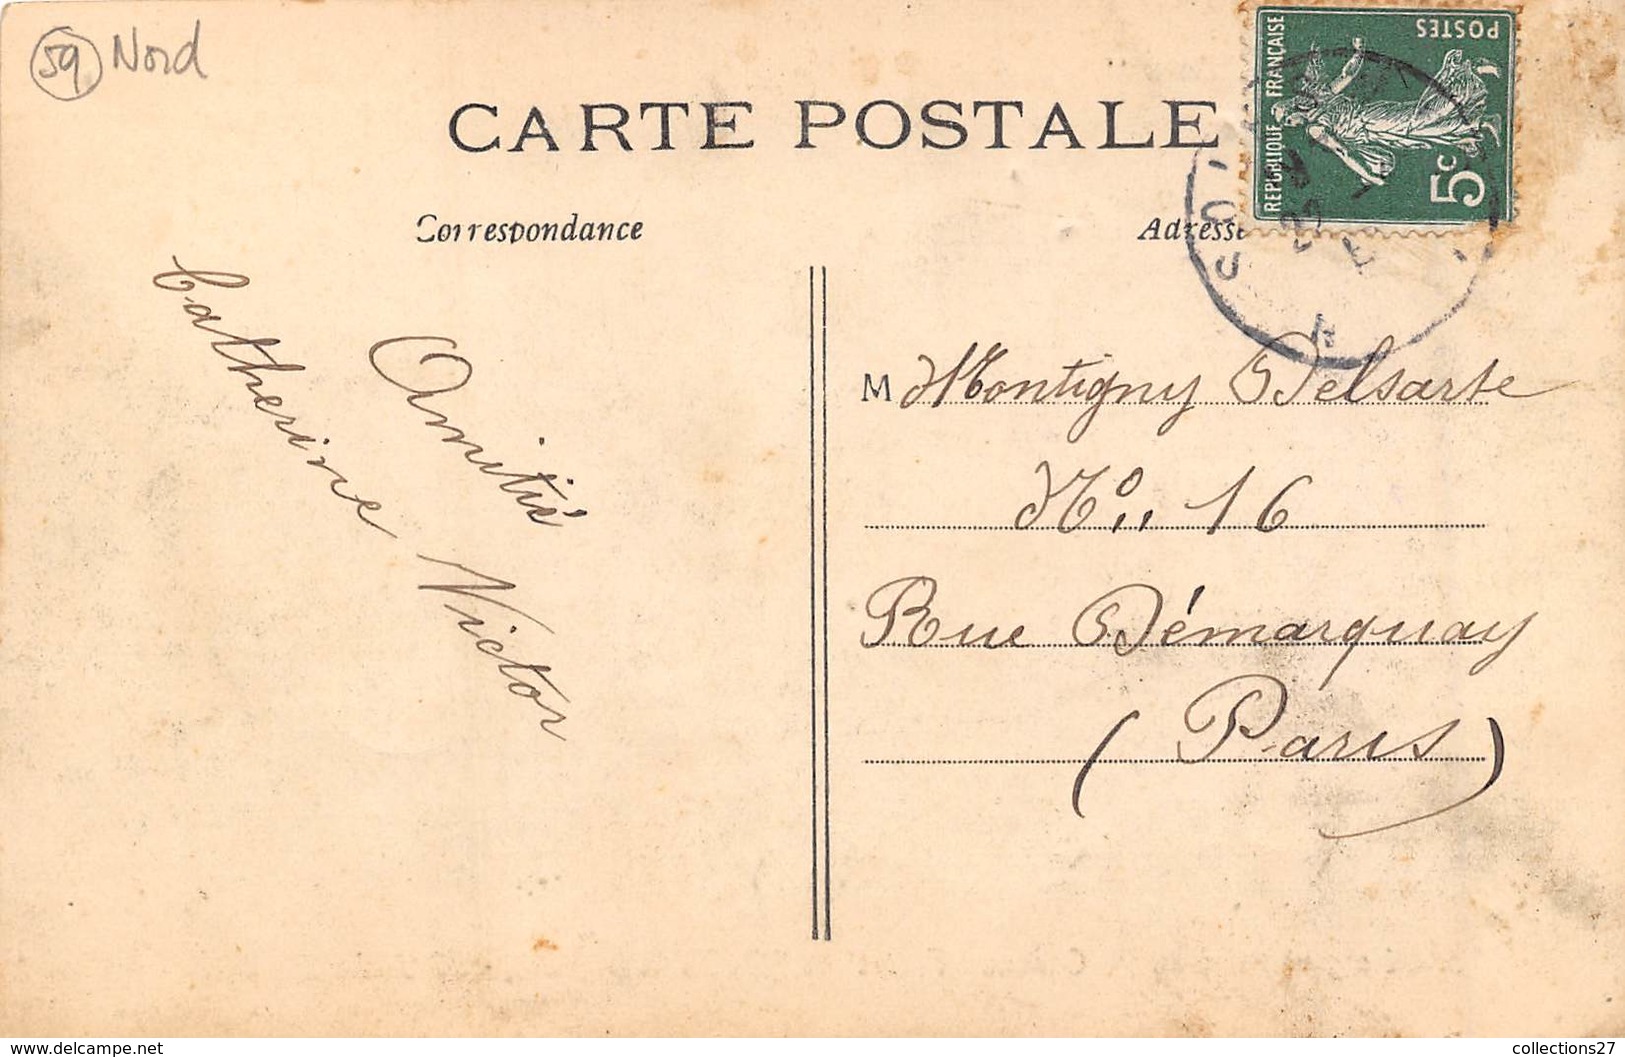 59 Nord
CARTE POSTALE
REPUBLIQUE FRANÇAISE
POSTES
5c
Correspondance
Adresse
Amitié
Catherine Victor
M Montigny Delsarte
No,, 16
Rue Démarquay
(Paris)
www.delcampe.net
collections27